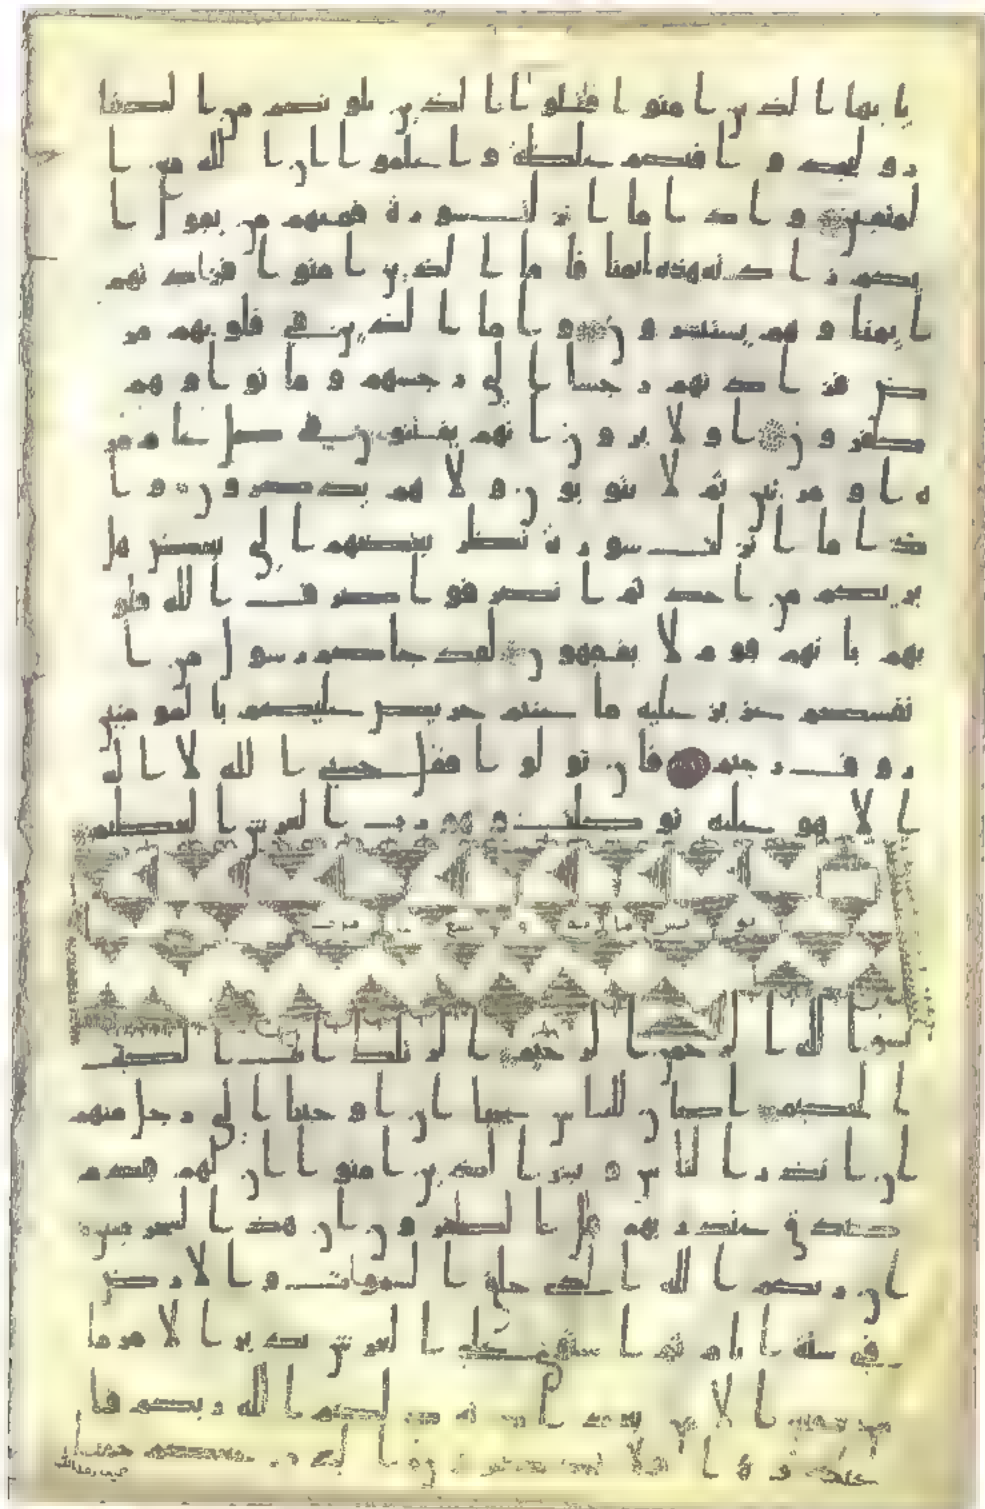 يايها الذين امنوا قتلوا الذين يلونكم من الكفا
ر وليجدوا فيكم غلظة واعلموا ان الله مع ا
لمتقين واذا ما انزلت سورة فمنهم من يقول ا
يكم زادته هذه ايمنا فاما الذين امنوا فزادتهم
ايمنا وهم يستبشرون واما الذين في قلوبهم مر
ض فزادتهم رجسا الى رجسهم وماتوا وهم
كفرون اولا يرون انهم يفتنون في كل عام مر
ة او مرتين ثم لا يتوبون ولا هم يذكرون وا
ذا ما انزلت سورة نظر بعضهم الى بعض هل
يريكم من احد ثم انصرفوا صرف الله قلو
بهم بانهم قوم لا يفقهون لقد جاكم رسول من ا
نفسكم عزيز عليه ما عنتم حريص عليكم بالمومنين
روف رحيم فان تولوا فقل حسبي الله لا اله
الا هو عليه توكلت وهو رب العرش العظيم
يونس مائة وتسع
بسم الله الرحمن الرحيم الر تلك ايت الكتب
الحكيم اكان للناس عجبا ان اوحينا الى رجل منهم
ان انذر الناس وبشر الذين امنوا ان لهم قدم
صدق عند ربهم قال الكفرون ان هذا لسحر مبين
ان ربكم الله الذي خلق السموات والارض
في ستة ايام ثم استوى على العرش يدبر الامر ما
من شفيع الا من بعد اذنه ذلكم الله ربكم فا
عبدوه افلا تذكرون اليه مرجعكم جميعا